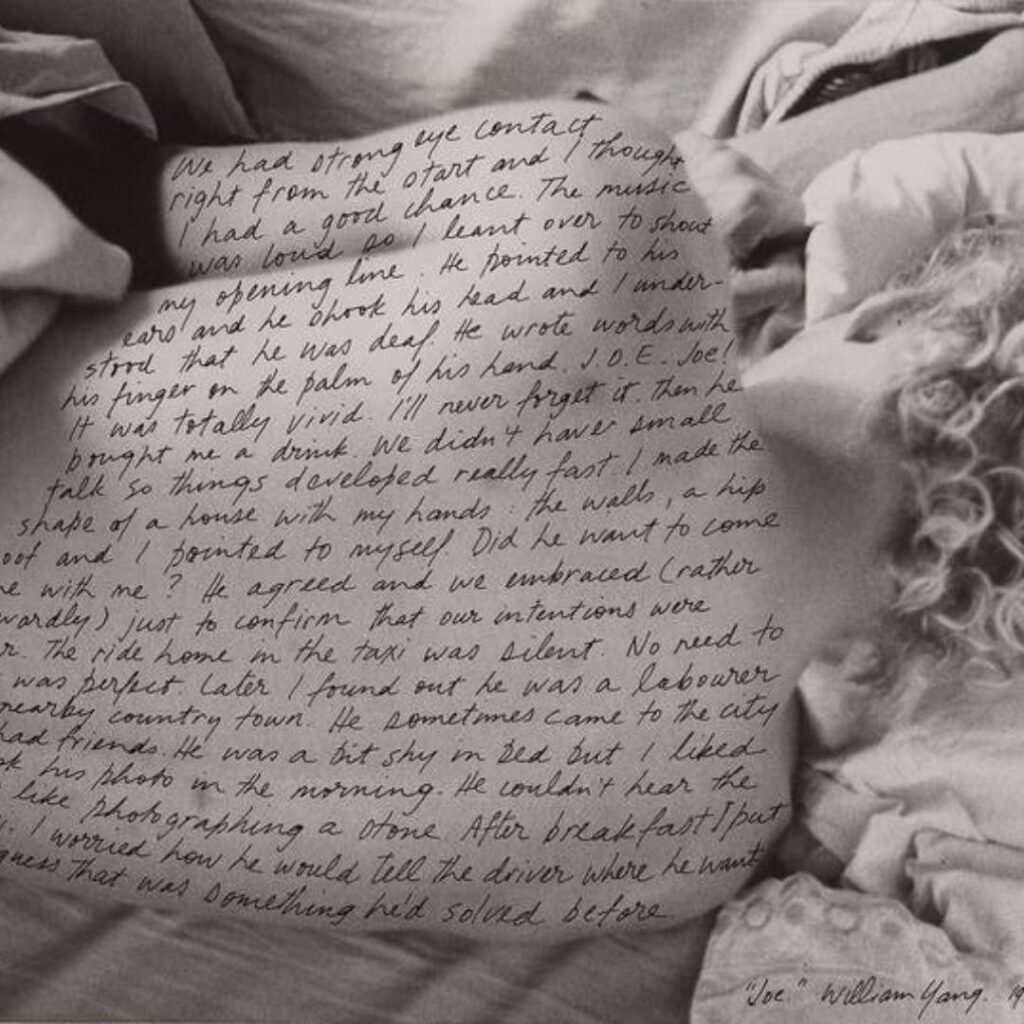 We had strong eye contact
right from the start and I thought
I had a good chance. The music
was loud so I leant over to shout
my opening line. He pointed to his
ears and he shook his head and I under-
stood that he was deaf. He wrote words with
his finger on the palm of his hand. J.O.E. Joe!
It was totally vivid. I'll never forget it. Then he
bought me a drink. We didn't have small
talk so things developed really fast. I made the
shape of a house with my hands: the walls, a hip
oof and I pointed to myself. Did he want to come
e with me? He agreed and we embraced (rather
wardly) just to confirm that our intentions were
r. The ride home in the taxi was silent. No need to
was perfect. Later I found out he was a labourer
nearby country town. He sometimes came to the city
had friends. He was a bit shy in bed but I liked
k his photo in the morning. He couldn't hear the
like photographing a stone. After breakfast I put
I worried how he would tell the driver where he want
guess that was something he'd solved before.
"Joe" William Yang. 19